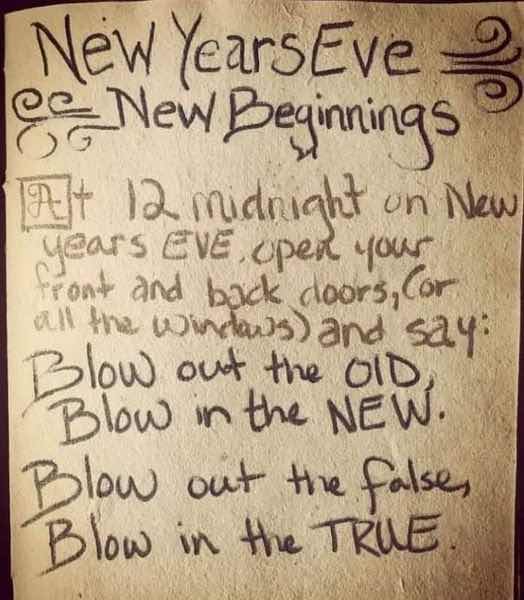 New Years Eve
New Beginnings
At 12 midnight on New
years EVE, open your
front and back doors, (or
all the windows) and say:
Blow out the OlD,
Blow in the NEW.
Blow out the false,
Blow in the TRUE.